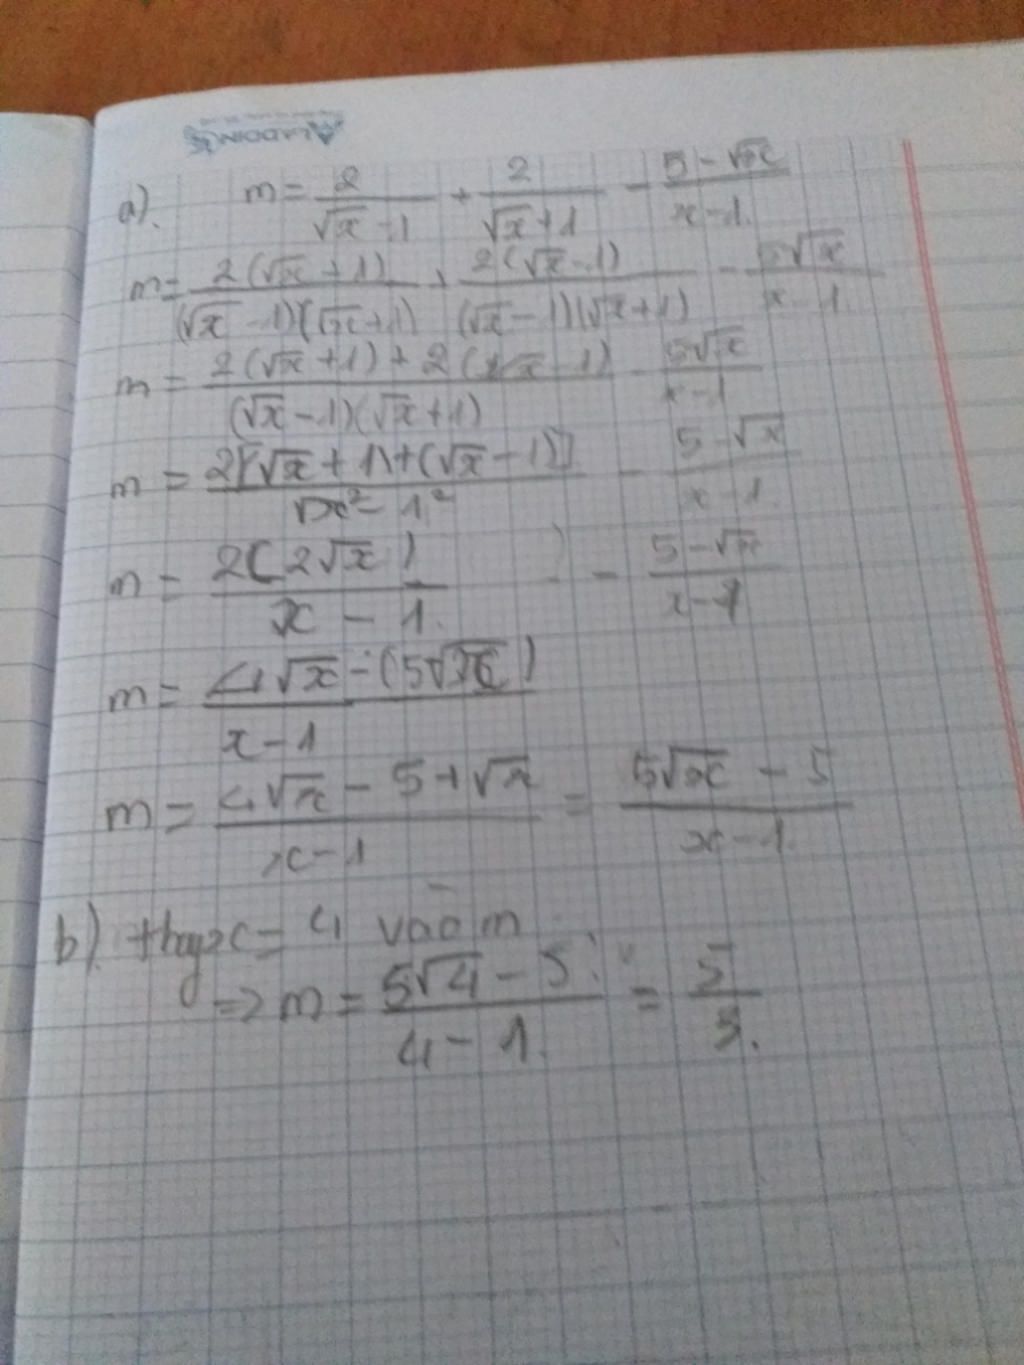 ALADDIN
a). m = 2/(√x - 1) + 2/(√x + 1) - (5 - √x)/(x - 1).
m = 2(√x + 1)/((√x - 1)(√x + 1)) + 2(√x - 1)/((√x - 1)(√x + 1)) - 5√x/(x - 1).
m = (2(√x + 1) + 2(√x - 1))/((√x - 1)(√x + 1)) - 5√x/(x - 1)
m = 2[(√x + 1) + (√x - 1)]/(√x² - 1²) - (5 - √x)/(x - 1).
m = 2(2√x)/(x - 1.) - (5 - √x)/(x - 1)
m = (4√x - (5√x))/(x - 1)
m = (4√x - 5 + √x)/(x - 1) = (5√x - 5)/(x - 1.)
b). thay x = 4 vào m
=> m = (5√4 - 5)/(4 - 1.) = 5/3.